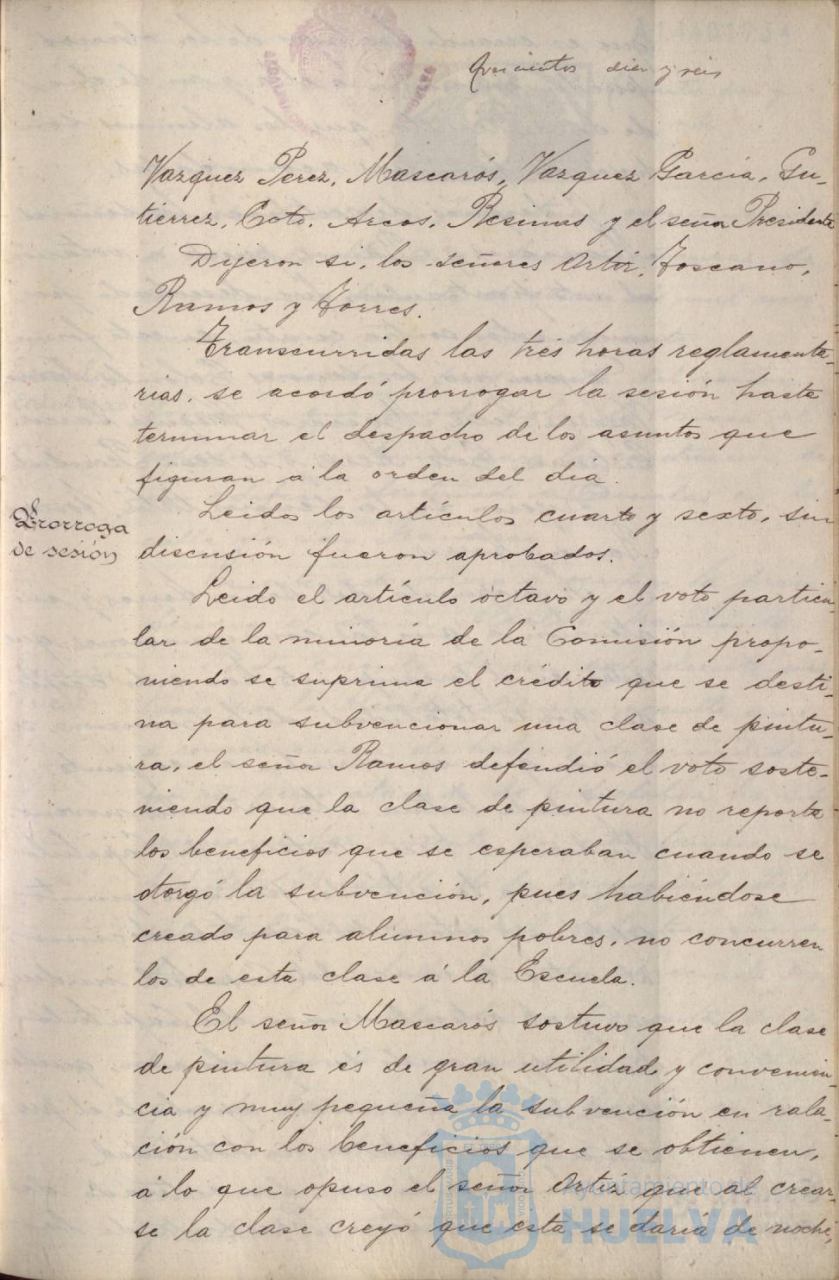 quinientos diez y seis
Vazquez Perez, Mascarós, Vazquez Garcia, Gu-
tierrez, Coto, Arcos, Resinas y el señor Presidente
Dijeron si, los señores Ortiz, Toscano,
Ramos y Torres.
Transcurridas las trés horas reglamenta-
rias, se acordó prorrogar la sesión hasta
terminar el despacho de los asuntos que
figuran á la orden del dia.
Prorroga
de sesión
Leidos los artículos cuarto y sexto, sin
discusión fueron aprobados.
Leido el artículo octavo y el voto particu-
lar de la minoría de la Comisión propo-
niendo se suprima el crédito que se desti-
na para subvencionar una clase de pintu-
ra, el señor Ramos defendió el voto soste-
niendo que la clase de pintura no reporta
los beneficios que se esperaban cuando se
otorgó la subvención, pues habiéndose
creado para alumnos pobres, no concurren
los de esta clase á la Escuela.
El señor Mascarós sostuvo que la clase
de pintura és de gran utilidad y convenien-
cia y muy pequeña la subvención en rala-
ción con los beneficios que se obtienen,
á lo que opuso el señor Ortiz que al crear-
se la clase creyó que esta se daría de noche,
Ayuntamiento de
HUELVA